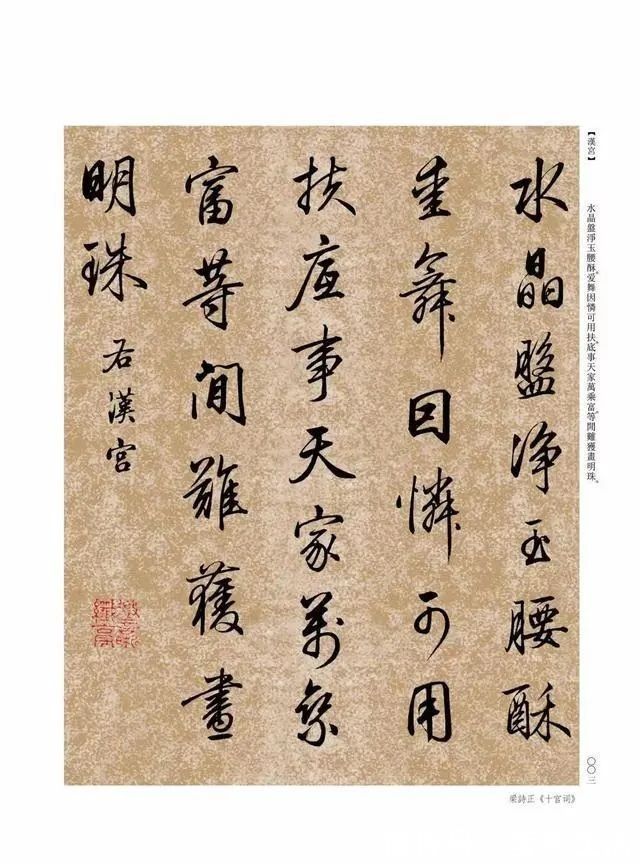 【漢宮】
水晶盤淨玉腰酥。爱舞因憐可用扶。底事天家萬乘富。等閒難獲畫明珠。
水晶盤淨玉腰酥
爱舞因憐可用
扶底事天家萬乘
富等閒難獲畫
明珠
右漢宮
〇〇三
梁詩正《十官司》